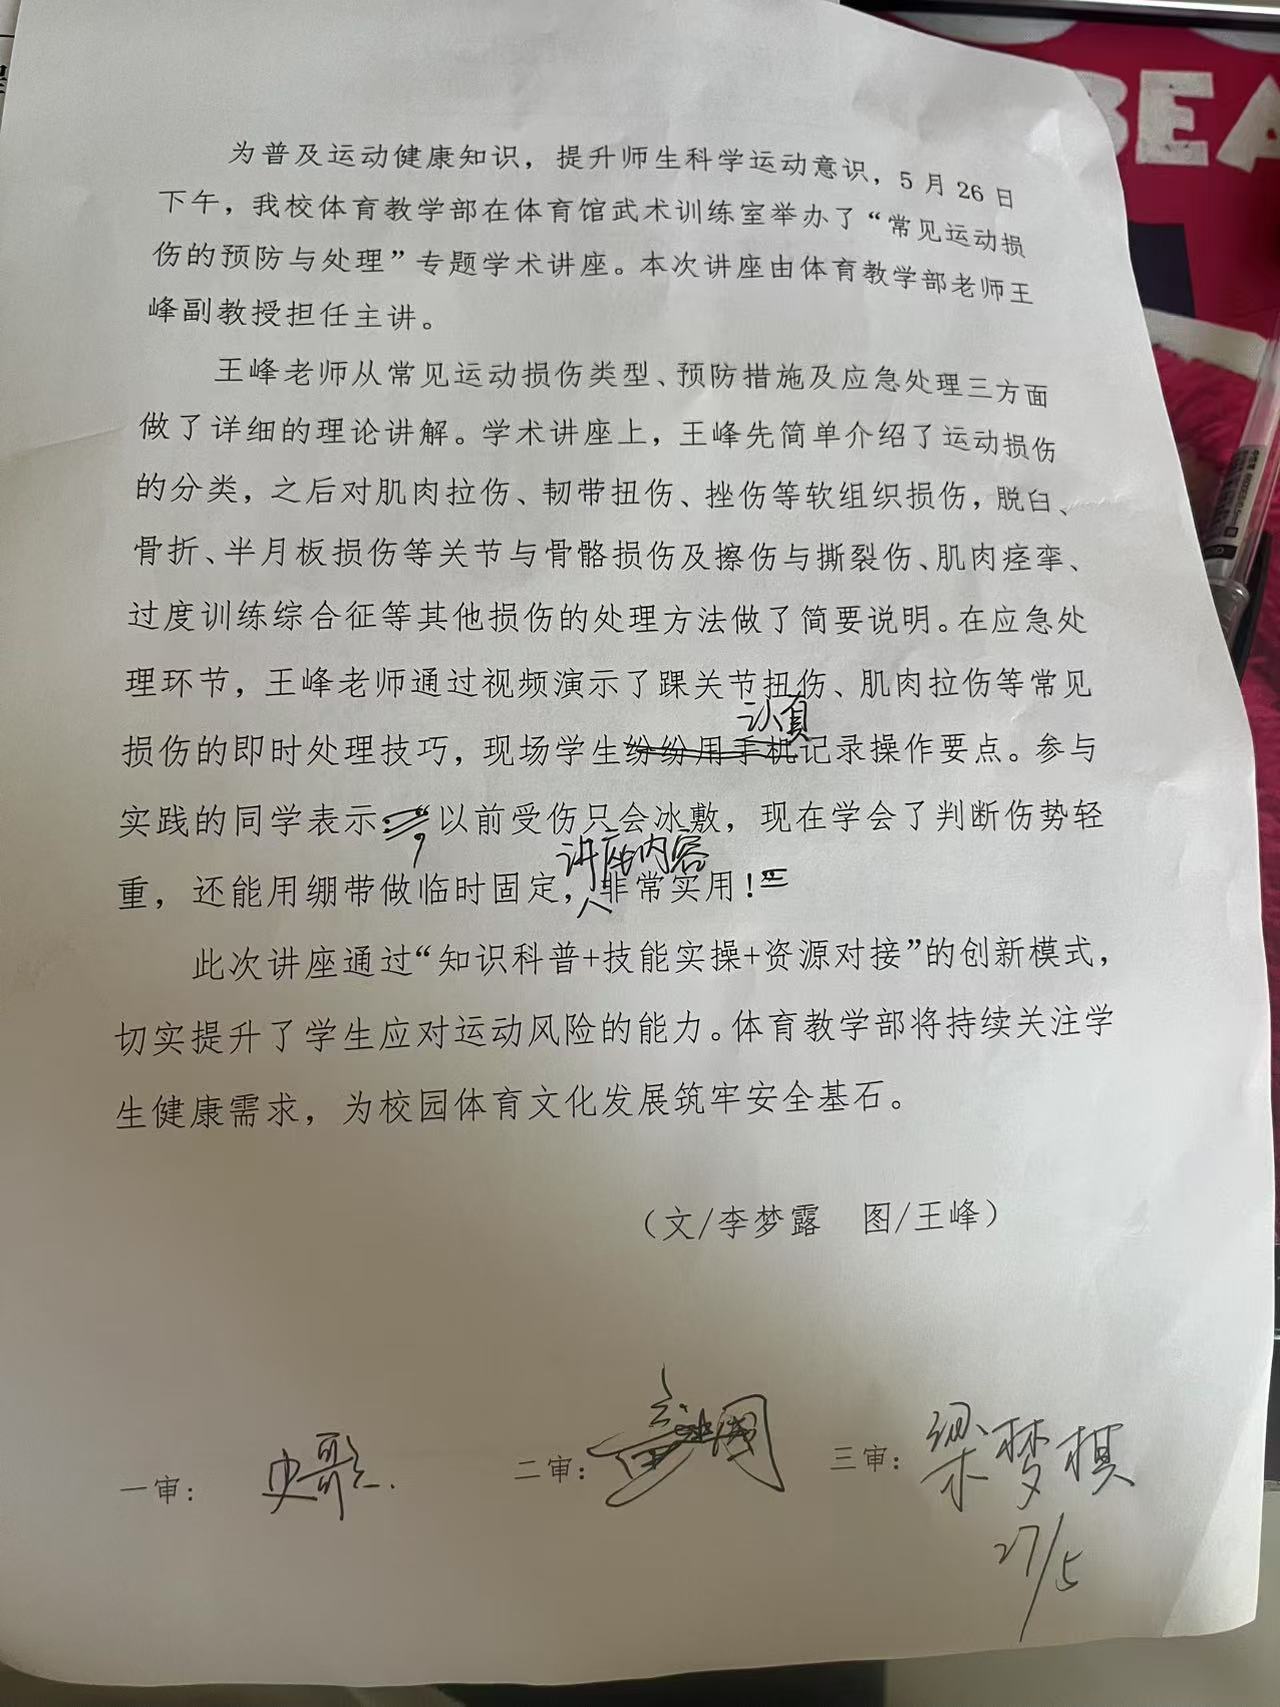 BEA
为普及运动健康知识，提升师生科学运动意识，5月26日
下午，我校体育教学部在体育馆武术训练室举办了“常见运动损
伤的预防与处理”专题学术讲座。本次讲座由体育教学部老师王
峰副教授担任主讲。
王峰老师从常见运动损伤类型、预防措施及应急处理三方面
做了详细的理论讲解。学术讲座上，王峰先简单介绍了运动损伤
的分类，之后对肌肉拉伤、韧带扭伤、挫伤等软组织损伤，脱臼、
骨折、半月板损伤等关节与骨骼损伤及擦伤与撕裂伤、肌肉痉挛、
过度训练综合征等其他损伤的处理方法做了简要说明。在应急处
理环节，王峰老师通过视频演示了踝关节扭伤、肌肉拉伤等常见
认真
损伤的即时处理技巧，现场学生纷纷用手机记录操作要点。参与
实践的同学表示：“以前受伤只会冰敷，现在学会了判断伤势轻
，
讲座内容
重，还能用绷带做临时固定，非常实用！”
此次讲座通过“知识科普+技能实操+资源对接”的创新模式，
切实提升了学生应对运动风险的能力。体育教学部将持续关注学
生健康需求，为校园体育文化发展筑牢安全基石。
（文/李梦露 图/王峰）
一审： 史歌 二审： 三审： 梁梦棋
27/5